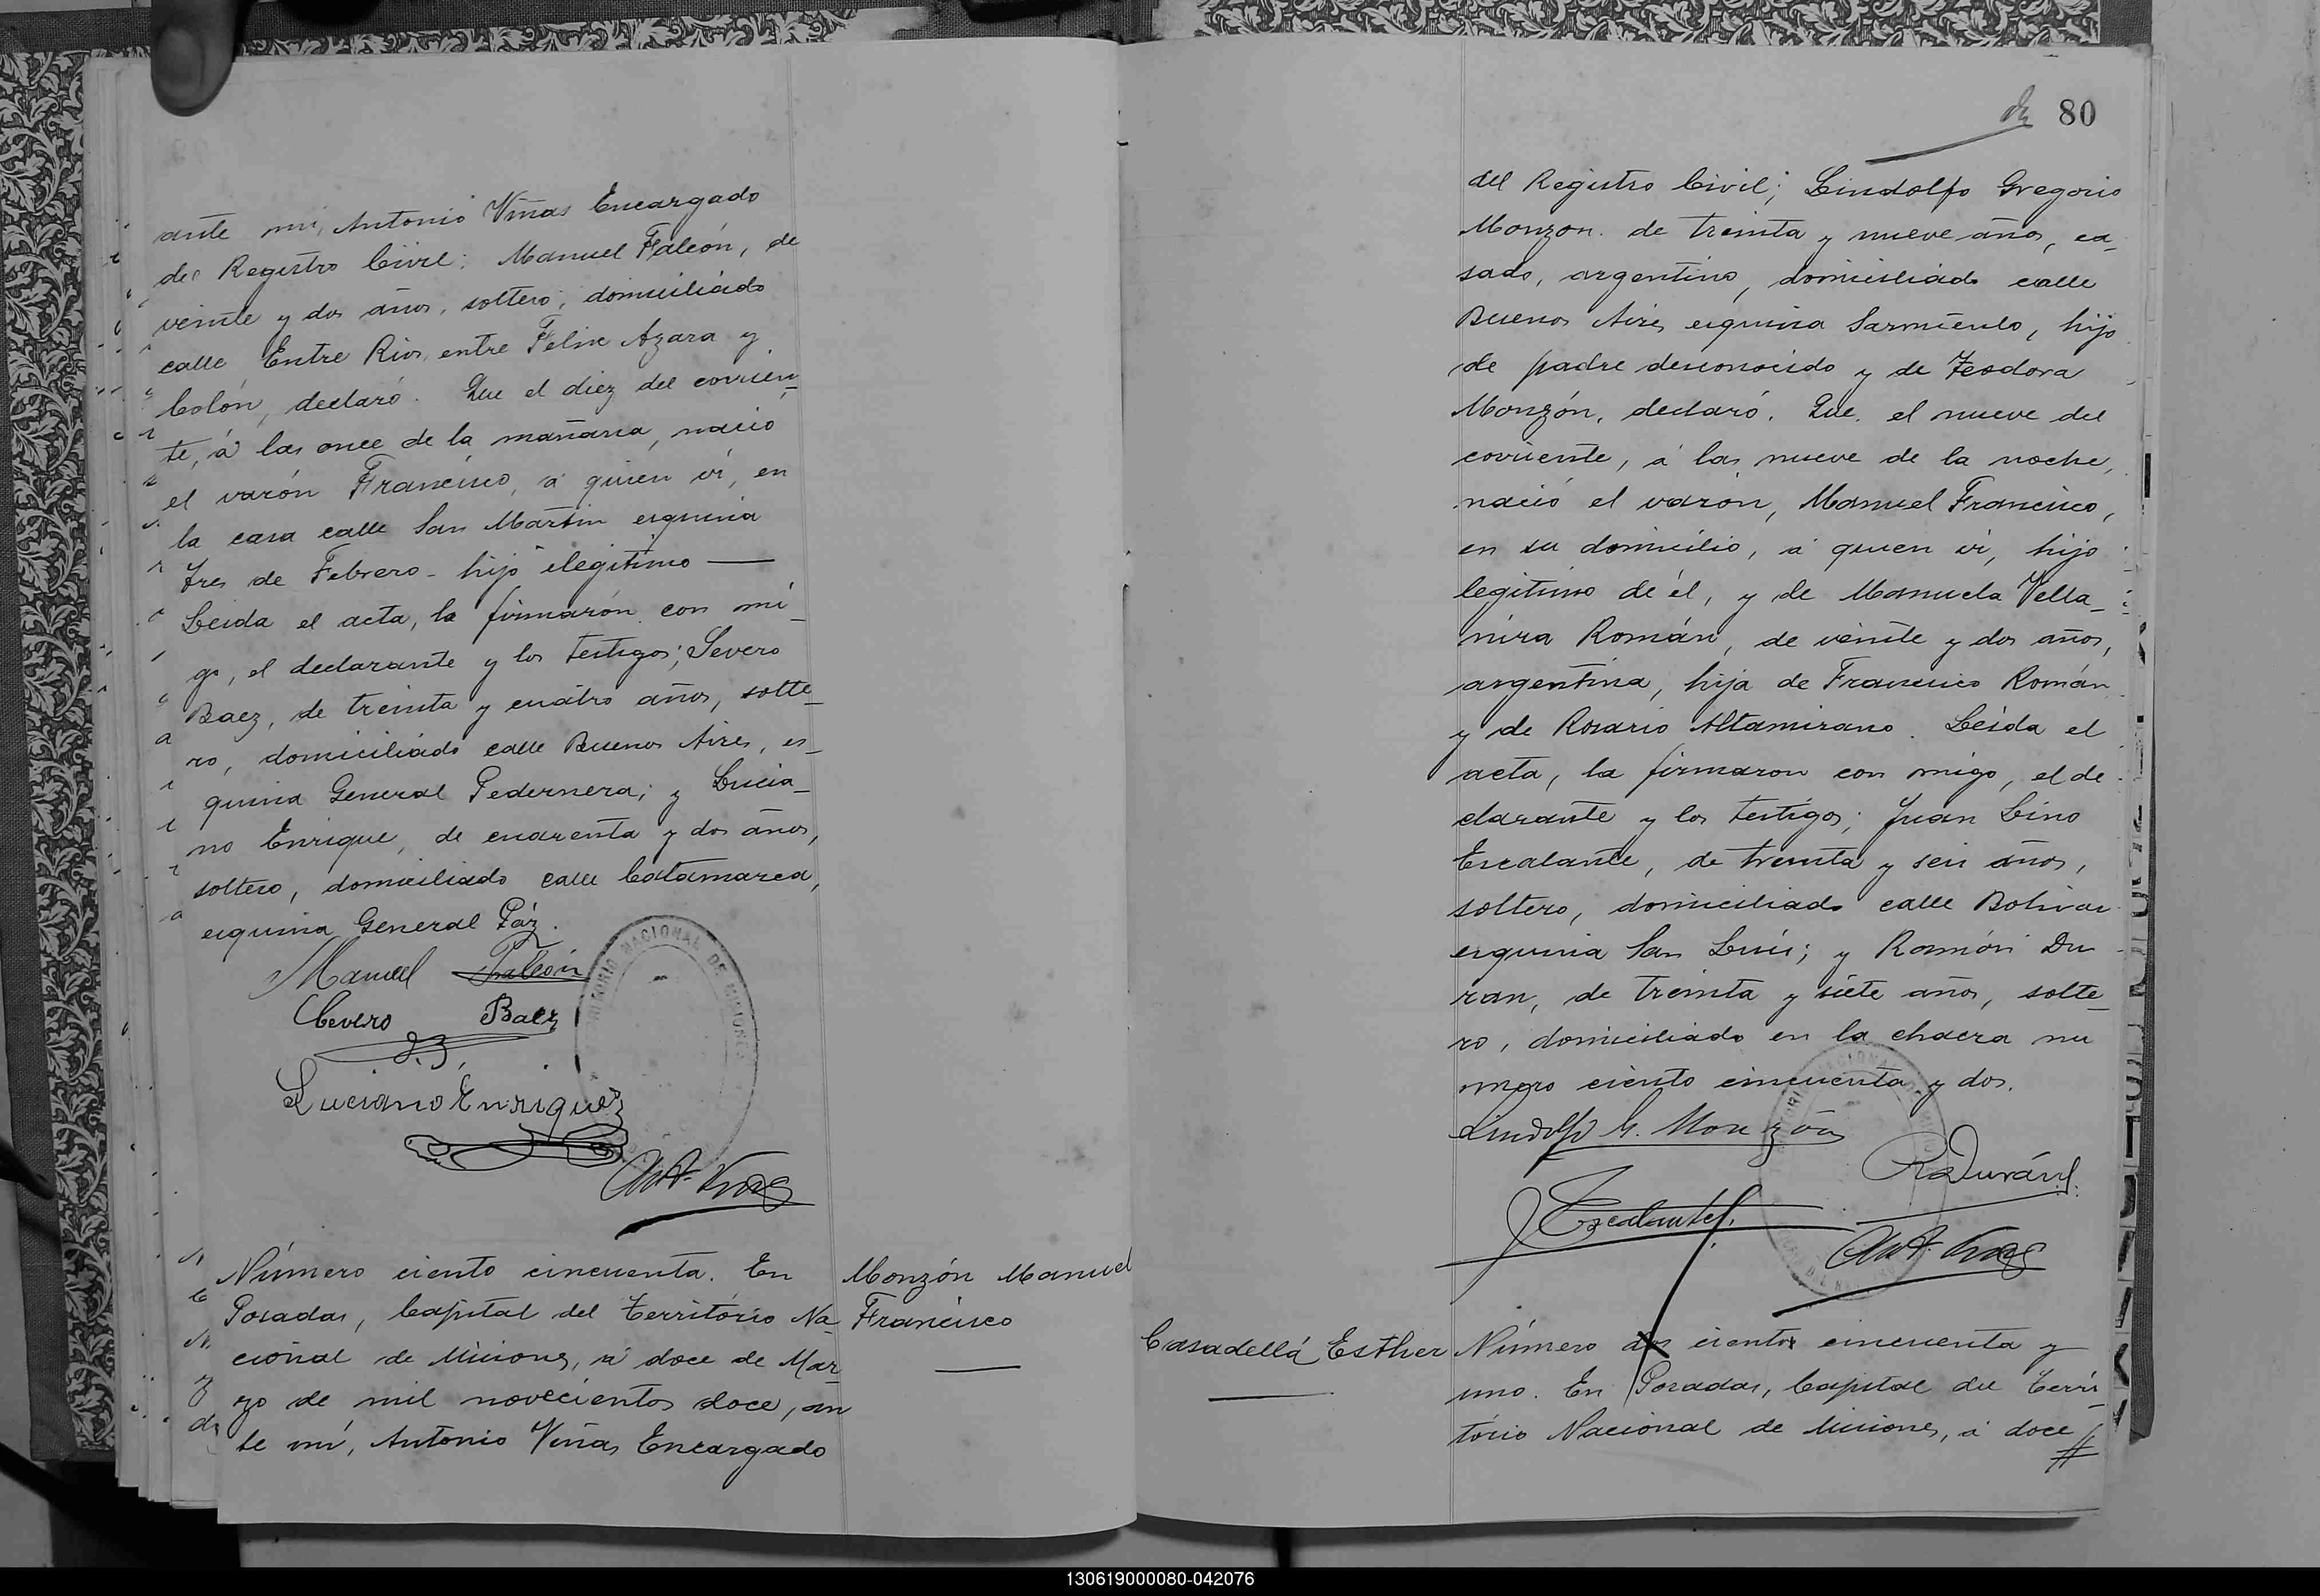 ante mi, Antonio Viñas Encargado
del Registro Civil; Manuel Falcón, de
veinte y dos años, soltero, domiciliado
calle Entre Rios, entre Felix Azara y
Colón, declaró. Que el diez del corrien-
te, á las once de la mañana, nació
el varón Francisco, á quien ví, en
la casa calle San Martin esquina
Tres de Febrero - hijo ilegitimo —
Leida el acta, la firmarón con mi-
go, el declarante y los testigos; Severo
Baez, de treinta y cuatro años, solte-
ro, domiciliado calle Buenos Aires, es-
quina General Pedernera; y Lucia-
no Enrique, de cuarenta y dos años,
soltero, domiciliado calle Catamarca,
esquina General Páz.
Manuel Falcón
Cevero Baez
Luciano Enriquez
Ant. Viñas
TERRITORIO NACIONAL DE MISIONES
Número ciento cincuenta. En
Posadas, Capital del Território Na-
cional de Misiones, á doce de Mar-
zo de mil novecientos doce, an
te mí, Antonio Viñas Encargado
Monzón Manuel
Francisco
80
del Registro Civil; Lindolfo Gregorio
Monzon. de treinta y nueve años, ca-
sado, argentino, domiciliado calle
Buenos Aires esquina Sarmiento, hijo
de padre desconocido y de Teodora
Monzón, declaró. Que, el nueve del
corriente, á las nueve de la noche,
nació el varón, Manuel Francisco,
en su domicilio, á quien ví, hijo
legitimo de él, y de Manuela Vella-
nira Román, de veinte y dos años,
argentina, hija de Francisco Román
y de Rosario Altamirano. Leida el
acta, la firmaron con migo, el de
clarante y los testigos; Juan Lino
Escalante, de treinta y seis años,
soltero, domiciliado calle Bolivar
esquina San Luis; y Ramón Du
ran, de treinta y siete años, solte-
ro, domiciliado en la chacra nu
mero ciento cincuenta y dos.
Lindolfo G. Monzón
R Durán
J Escalante
Ant. Viñas
Casadellá Esther
Número dos ciento cincuenta y
uno. En Posadas, Capital del Terri-
tório Nacional de Misiones, á doce
130619000080-042076